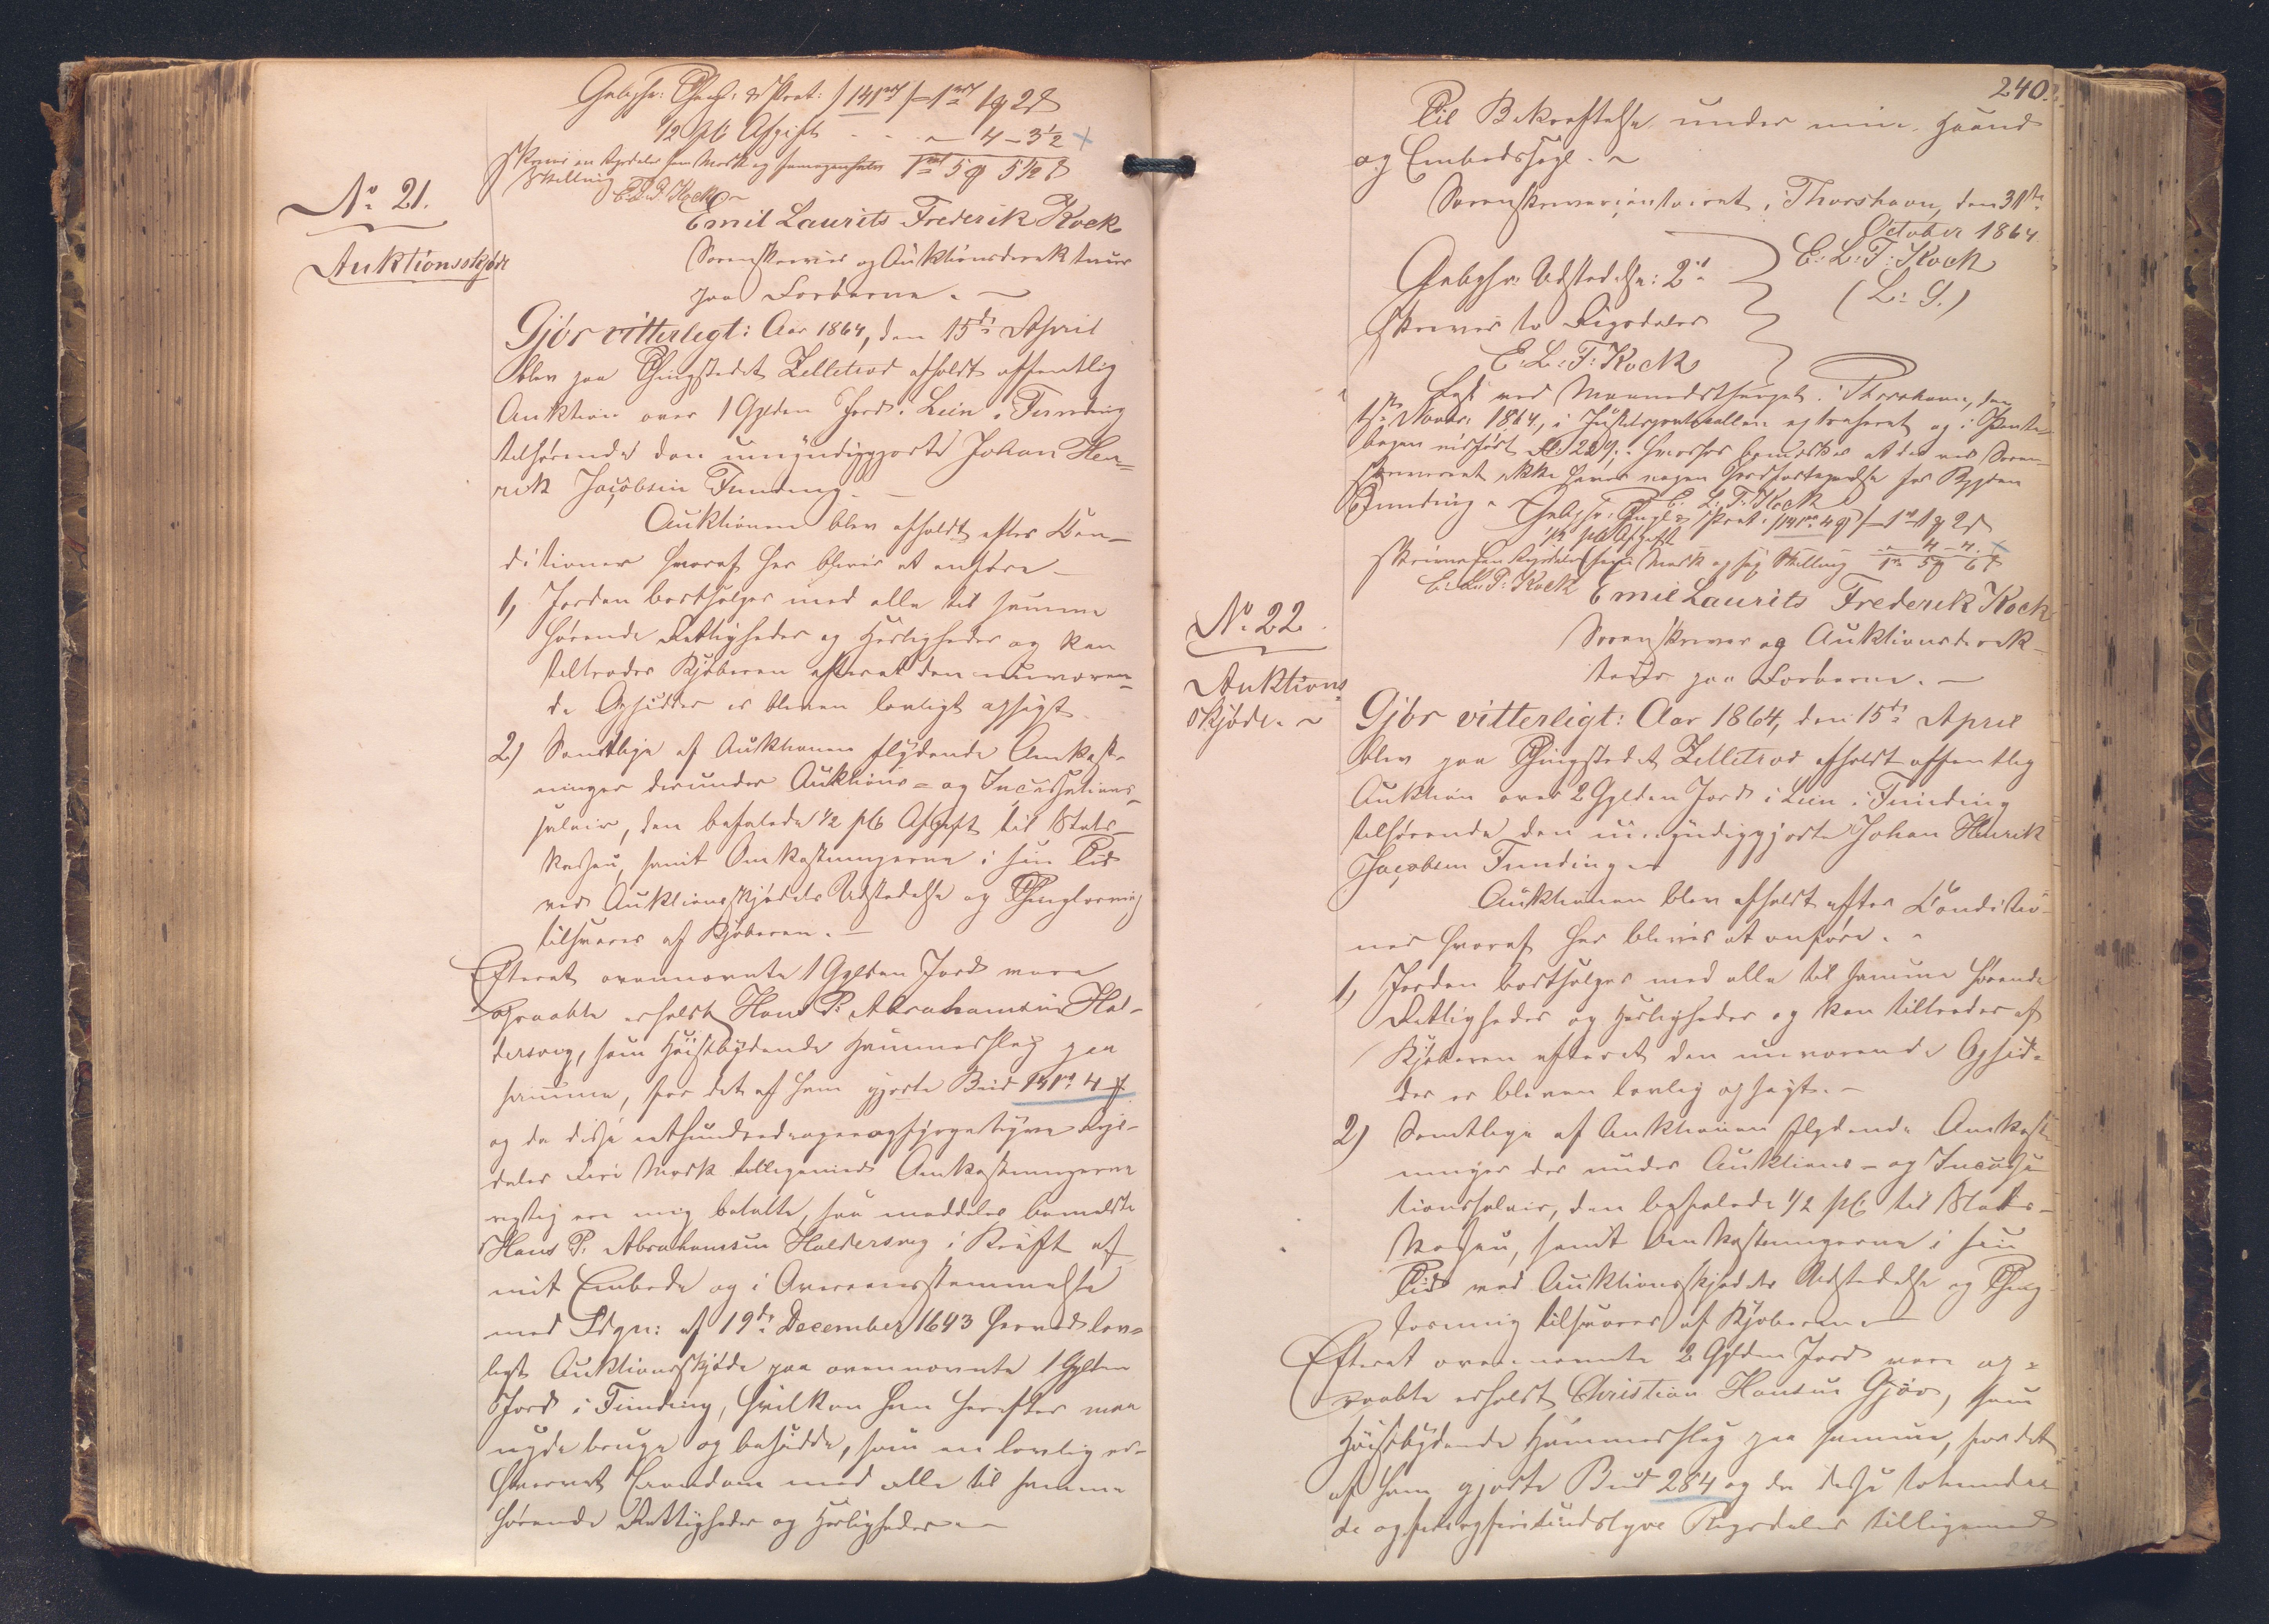 Gebyhr: Thingl: & Prot: /141rd/ – 1rd 1# 2ß
1/2 pCt Afgift - - - „ 4 – 3 1/2 +
Skriver en Rigsdaler fem Mark og 1rd 5# 5 1/2 ß
Skilling E. L. F. Kock
No 21.
Auktionsskjøde
Emil Laurits Frederik Kock
Sorenskriver og Auktionsdirekteur
paa Færøerne. –
Gjör vitterligt: Aar 1864, den 15de April
blev paa Thingstedet Zelletrod afholdt offentlig
Auktion over 1 Gylden Jord i Lein i Funding
tilhørende den umyndiggjorte Johan Hen-
rik Jacobsen Funding. –
Auktionen blev afholdt efter Con-
ditioner hvoraf her bliver at anføre –
1, Jorden bortsælges med alle til samme
hørende Rettigheder og Herligheder og kan
tiltrædes Kjøberen efterat den nuværen-
de Opsidder er bleven lovligt opsagt.
2) Samtlige af Auktionen flydende Omkost-
ninger derunder Auktions- og Incassations-
salair, den befalede 1/2 pCt Afgift til Stats-
kassen, samt Omkostningerne i sin Tid
ved Auktionsskjødets Udstedelse og Thinglæsning
tilsvares af Kjøberen. –
Efterat ovennævnte 1 Gylden Jord være
opraabte erholdt Hans P. Abrahamsen Hal-
dersvig, som Høistbydende Hammerslag paa
samme, for det af ham gjorte Bud 141rd 4#
og da disse eethundrede og fyrgetyve Rigs-
daler fire Mark tilligemed Omkostningerne
rigtig ere mig betalte, saa meddeles bemeldte
Hans P. Abrahamsen Haldersvig i Kraft af
mit Embede og i Overeensstemmelse
med Frdgn: af 19de December 1693 herved lov-
ligt Auktionsskjøde paa ovennævnte 1 Gylden
Jord i Funding, hvilken han herefter maa
nyde bruge og besidde, som en lovlig er-
hvervet Eiendom med alle til samme
hørende Rettigheder og Herligheder. –
240.
Til Bekræftelse under min Haand
og Embedssegl. ~
Sorenskrivercontoiret i Thorshavn, den 31te
October 1864
E: L: F: Kock
(L: S.)
Gebyhr: Udstedelse: 2rd
skriver to Rigsdaler
E: L: F: Kock
Læst ved Maanedsthinget i Thorshavn, den
1ste Novbr: 1864, i Justitsprotocollen extraheret og i Pante-
bogen indført No 239; hvorhos bemærkes at der ved Soren-
skriveriet ikke haves nogen Jordfortegnelse for Bygden
Funding. E. L. F. Kock
Gebyhr: Thingl & Prot: /141rd 4#/ – 1rd 1# 2ß
1/2 pCt Afgift „ 4 – 4. +
skriver een Rigsdaler fem Mark og sex Skilling 1rd 5# 6ß
E: L: F: Kock
No 22.
Auktions-
skjøde. ~
Emil Laurits Frederik Kock
Sorenskriver og Auktionsdirek-
teur paa Færøerne. –
Gjör vitterligt: Aar 1864, den 15de April
blev paa Thingstedet Zelletrod afholdt offentlig
Auktion over 2 Gylden Jord i Lein i Funding
tilhørende den umyndiggjorte Johan Henrik
Jacobsen Funding –
Auktionen blev afholdt efter Conditio-
ner hvoraf her bliver at anføre. –
1, Jorden bortsælges med alle til samme hørende
Rettigheder og Herligheder og kan tiltrædes af
Kjøberen efterat den nuværende Opsid-
der er bleven lovlig opsagt. –
2) Samtlige af Auktionen flydende Omkost-
ninger der under Auktions- og Incassa-
tionssalair, den befalede 1/2 pCt til Stats-
kassen, samt Omkostningerne i sin
Tid ved Auktionsskjødets Udstedelse og Thing-
læsning tilsvares af Kjøberen –
Efterat ovennævnte 2 Gylden Jord være op-
raabte erholdt Christian Hansen Gjøv, som
Høistbydende Hammerslag paa samme, for det
af ham gjorte Bud 284 og da disse tohundre-
de og fire og firsindstyve Rigsdaler tilligemed